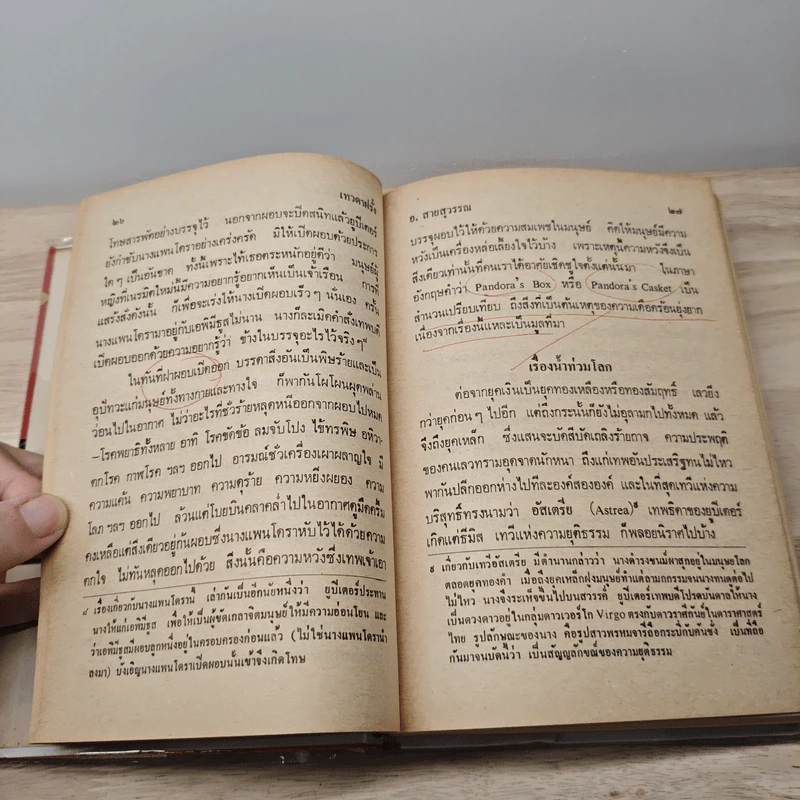 ๒๖
เทวดาฝรั่ง
โทษสารพัดอย่างบรรจุไว้ นอกจากผอบจะปิดสนิทแล้วยูปีเตอร์
ยังกำชับนางแพนโดราอย่างเคร่งครัด มิให้เปิดผอบด้วยประการ
ใด ๆ เป็นอันขาด ทั้งนี้เพราะไท้เธอตระหนักอยู่ดีว่า มนุษย์ผู้
หญิงที่เนรมิตใหม่นี้มีความอยากรู้อยากเห็นเป็นเจ้าเรือน การที่
แสร้งสั่งดังนั้น ก็เพื่อจะเร่งให้นางเปิดผอบเร็ว ๆ นั่นเอง ครั้น
นางแพนโดรามาอยู่กับเอพิมีธูสไม่นาน นางก็ละเมิดคำสั่งเทพบดี
เปิดผอบออกด้วยความอยากรู้ว่า ข้างในบรรจุอะไรไว้จริงๆ๘
ในทันทีฝาผอบเปิดออก บรรดาสิ่งอันเป็นพิษร้ายและเป็น
อุปัทวะแก่มนุษย์ทั้งทางกายและทางใจ ก็พากันโผโผนผุดพล่าน
ว่อนไปในอากาศ ไม่ว่าอะไรที่ชั่วร้ายหลุดหนีออกจากผอบไปหมด
–โรคพยาธิทั้งหลาย อาทิ โรคขัดข้อ ลมจับโปง ไข้ทรพิษ อหิวา-
ตกโรค กาฬโรค ฯลฯ ออกไป อารมณ์ชั่วเครื่องเผาผลาญใจ มี
ความแค้น ความพยาบาท ความดุร้าย ความหยิ่งผยอง ความ
โลภ ฯลฯ ออกไป ล้วนแต่โบยบินคลาคล่ำไปในอากาศดูมืดครึ้ม
คงเหลือแต่สิ่งเดียวอยู่ก้นผอบซึ่งนางแพนโดราหับไว้ได้ด้วยความ
ตกใจ ไม่ทันหลุดออกไปด้วย สิ่งนั้นคือความหวังซึ่งเทพเจ้าเอา
๘ เรื่องเกี่ยวกับนางแพนโดรานี้ เล่ากันเป็นอีกนัยหนึ่งว่า ยูปีเตอร์ประทาน
นางให้แก่เอพิมีธูส เพื่อให้เป็นผู้ขัดเกลาจิตมนุษย์ให้มีความอ่อนโยน และ
ว่าเอพิมีธูสมีผอบลูกหนึ่งอยู่ในครอบครองก่อนแล้ว (ไม่ใช่นางแพนโดรานำ
ลงมา) บังเอิญนางแพนโดราเปิดผอบนั้นเข้าจึงเกิดโทษ
อ. สายสุวรรณ
๒๗
บรรจุผอบไว้ให้ด้วยความสมเพชในมนุษย์ คิดให้มนุษย์มีความ
หวังเป็นเครื่องหล่อเลี้ยงใจไว้บ้าง เพราะเหตุนี้ความหวังจึงเป็น
สิ่งเดียวเท่านั้นที่คนเราได้อาศัยเชิดชูใจตั้งแต่นั้นมา ในภาษา
อังกฤษคำว่า Pandora's Box หรือ Pandora's Casket เป็น
สำนวนเปรียบเทียบ ถึงสิ่งที่เป็นต้นเหตุของความเดือดร้อนยุ่งยาก
เนื่องจากเรื่องนี้แหละเป็นมูลที่มา
เรื่องน้ำท่วมโลก
ต่อจากยุคเงินเป็นยุคทองเหลืองหรือทองสัมฤทธิ์ เลวยิ่ง
กว่ายุคก่อนๆ ไปอีก แต่ถึงกระนั้นก็ยังไม่อุลามกไปทั้งหมด แล้ว
จึงถึงยุคเหล็ก ซึ่งแสนจะบัดสีบัดเถลิงร้ายกาจ ความประพฤติ
ของคนเลวทรามอุดจาดนักหนา ถึงแก่เทพอันประเสริฐทนไม่ไหว
พากันปลีกออกห่างไปทีละองค์สององค์ และในที่สุดเทวีแห่งความ
บริสุทธิ์ทรงนามว่า อัสเตรีย (Astrea)๙ เทพธิดาของยูปีเตอร์
เกิดแต่ธีมิส เทวีแห่งความยุติธรรม ก็พลอยนิราศไปบ้าง
๙ เกี่ยวกับเทวีอัสเตรีย มีตำนานกล่าวว่า นางดำรงชนม์ผาสุกอยู่ในมนุษย์โลก
ตลอดยุคทองคำ เมื่อถึงยุคเหล็กฝูงมนุษย์ทำแต่ลามกกรรมจนนางทนดูต่อไป
ไม่ไหว นางจึงระเห็จขึ้นไปบนสวรรค์ ยูปีเตอร์เทพบดีโปรดบันดาลให้นาง
เป็นดวงดาวอยู่ในกลุ่มดาวเวอร์โก Virgo ตรงกับดาวราศีกันย์ในดาราศาสตร์
ไทย รูปลักษณะของนาง คือรูปสาวพรหมจารีถือกระบี่กับคันชั่ง เป็นที่ถือ
กันมาจนบัดนี้ว่า เป็นสัญญลักษณ์ของความยุติธรรม